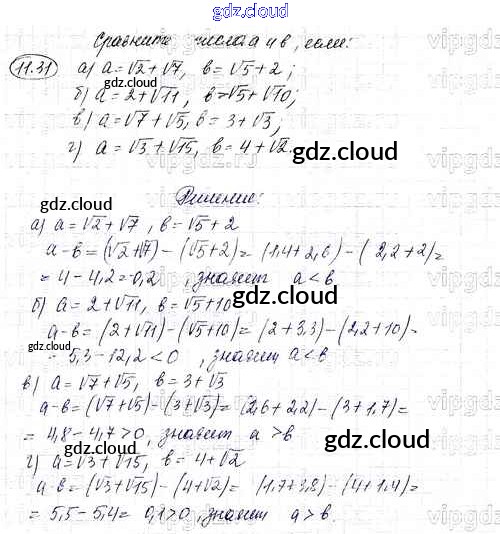 gdz.cloud
Сравните числа a и b, если:
11.31 а) a = √2 + √7, b = √5 + 2;
б) a = 2 + √11, b = √5 + √10;
в) a = √7 + √5, b = 3 + √3;
г) a = √3 + √15, b = 4 + √2.
gdz.cloud
gdz.cloud
gdz.cloud
Решение:
а) a = √2 + √7, b = √5 + 2
a - b = (√2 + √7) - (√5 + 2) = (1,4 + 2,6) - (2,2 + 2) =
= 4 - 4,2 = 0,2, значит a < b
б) a = 2 + √11, b = √5 + 10
gdz.cloud
a - b = (2 + √11) - (√5 + 10) = (2 + 3,3) - (2,2 + 10) =
gdz.cloud
= 5,3 - 12,2 < 0, значит a < b
в) a = √7 + √5, b = 3 + √3
a - b = (√7 + √5) - (3 + √3) = (2,6 + 2,2) - (3 + 1,7) =
= 4,8 - 4,7 > 0, значит a > b
gdz.cloud
г) a = √3 + √15, b = 4 + √2
a - b = (√3 + √15) - (4 + √2) = (1,7 + 3,8) - (4 + 1,4) =
= 5,5 - 5,4 = 0,1 > 0, значит a > b.
gdz.cloud